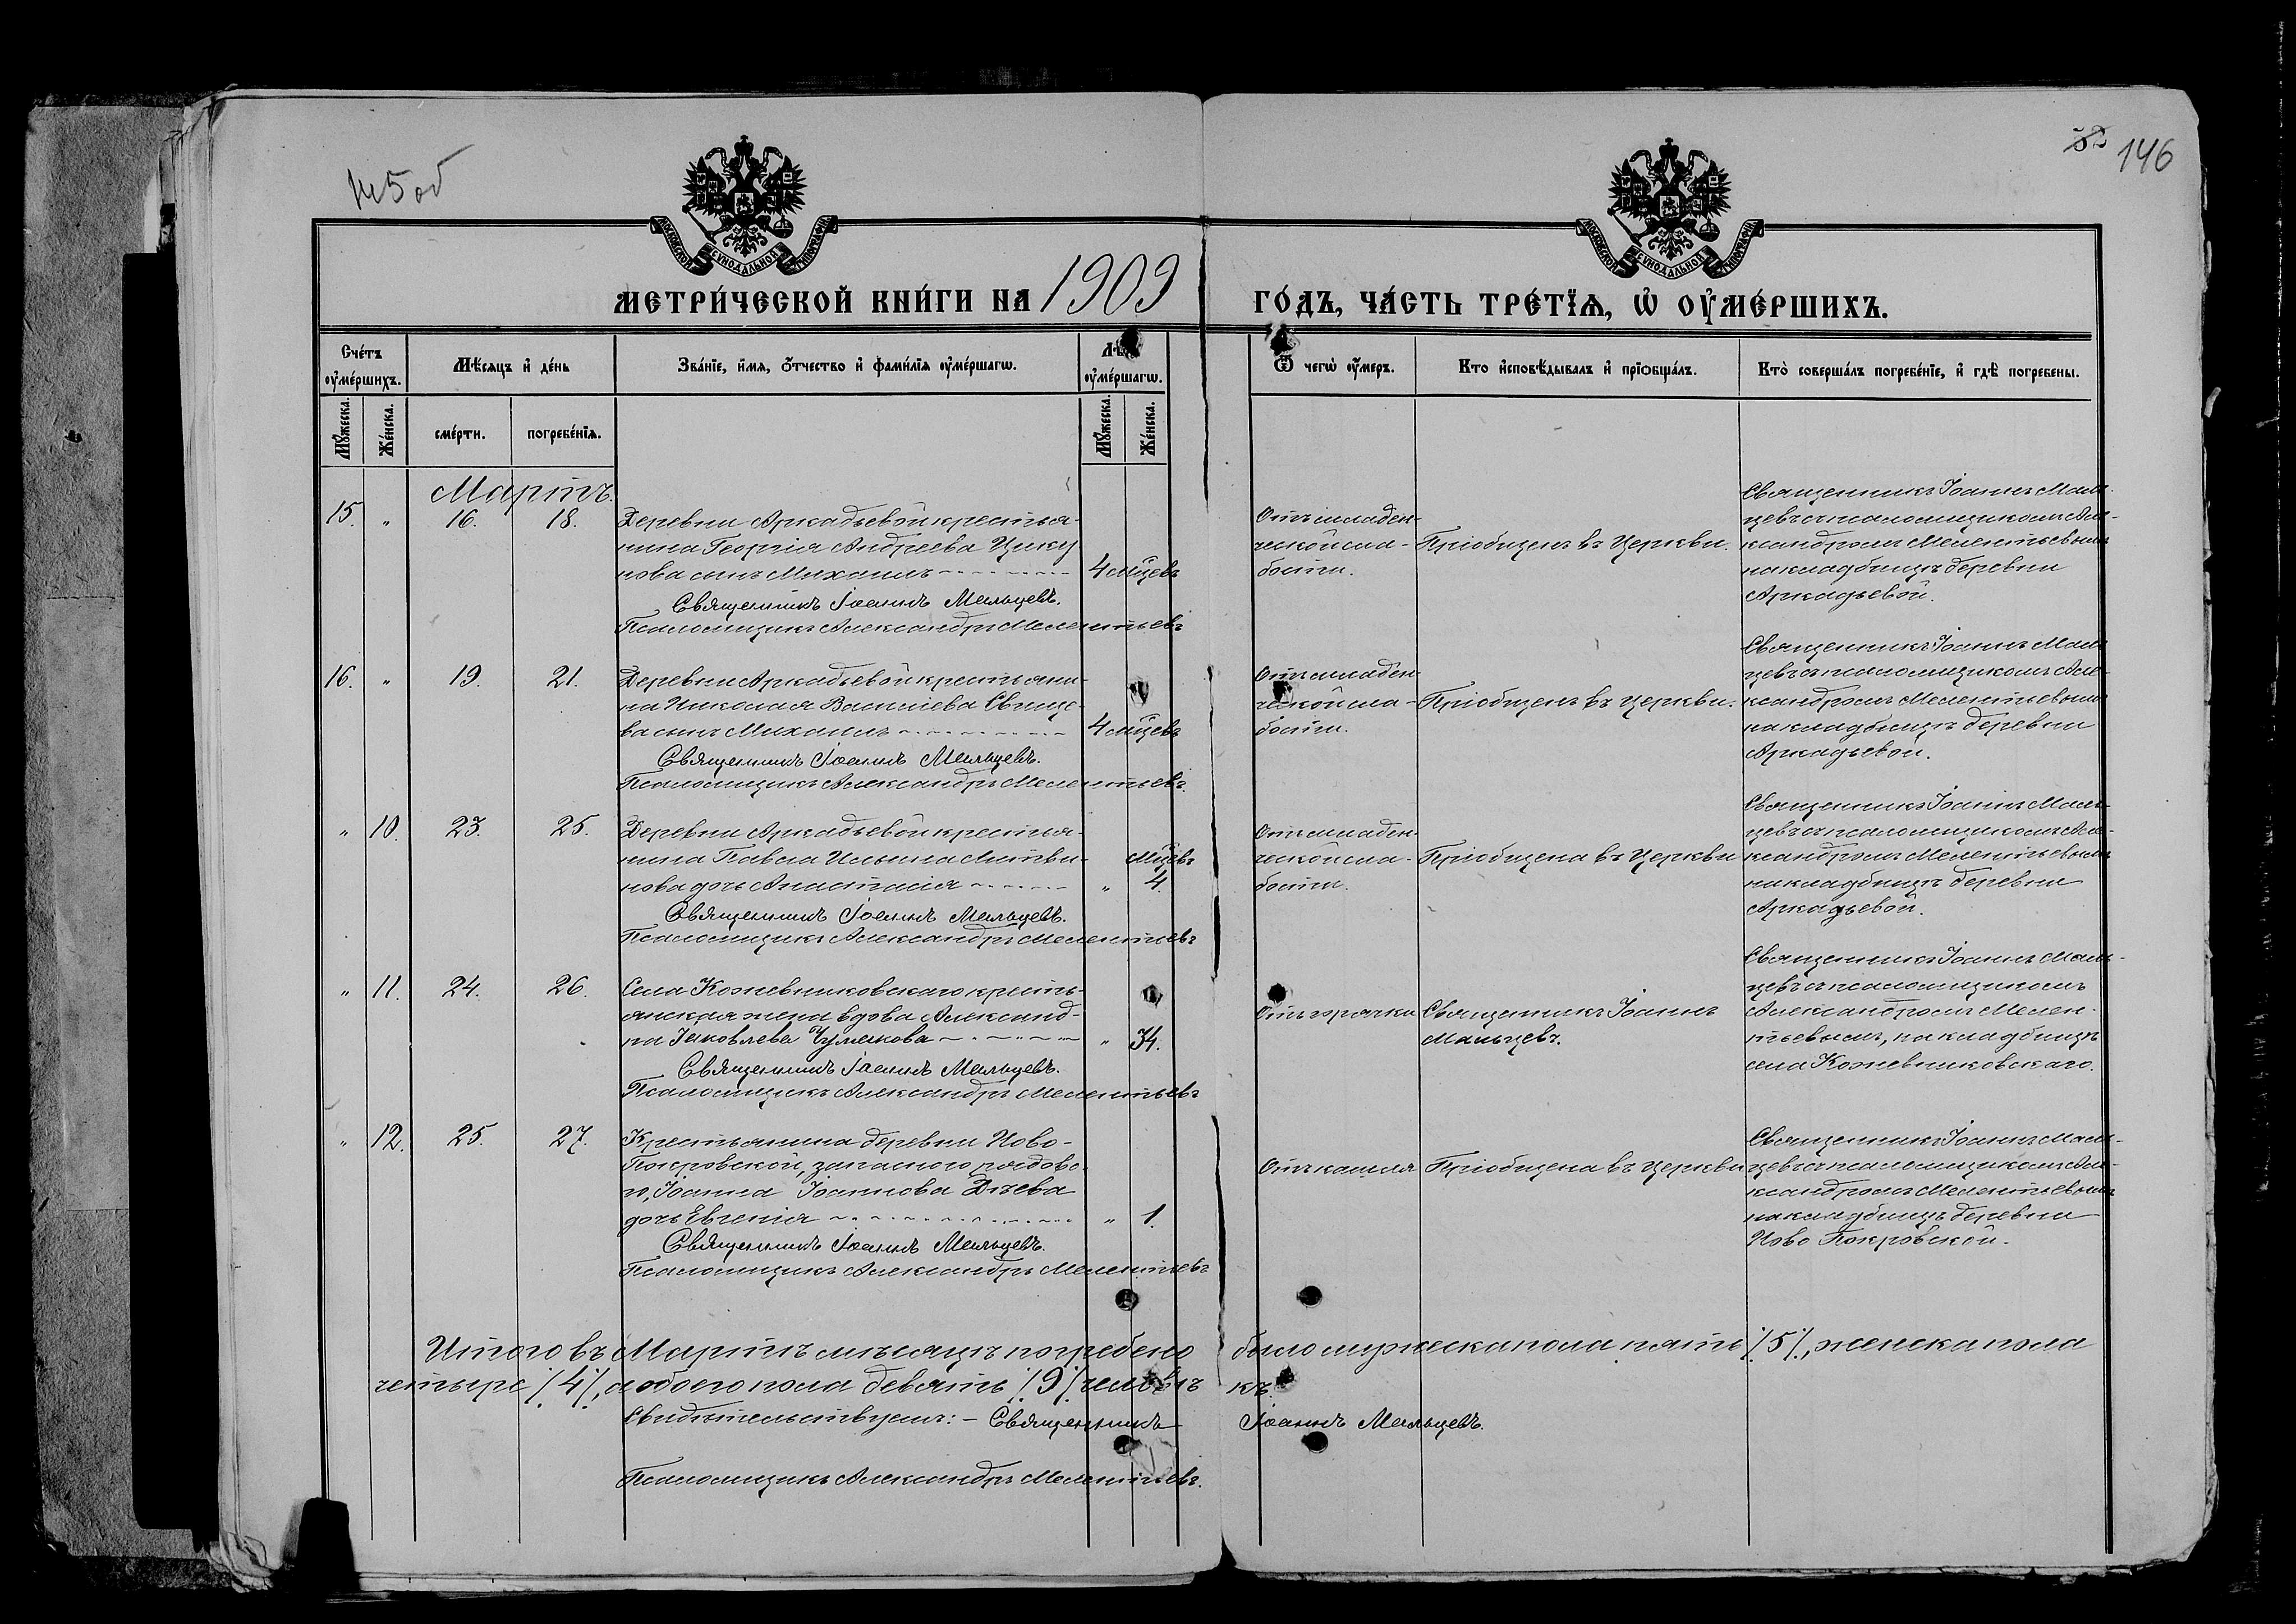 145 об
52 146
МОСКОВСКОЙ СУНОДАЛЬНОЙ ТИПОГРАФІИ
МОСКОВСКОЙ СУНОДАЛЬНОЙ ТИПОГРАФІИ
МЕТРИ́ЧЕСКОЙ КНИ́ГИ НА 1909 ГО́ДЪ, ЧА́СТЬ ТРЕ́ТЇѦ, Ѡ҆ ОУ҆МЕ́РШИХЪ.
Сче́тъ оу҆ме́ршихъ.
Мѣ́сяцъ и҆ де́нь
Зва́нїе, и҆́мя, ѻ҆́тчество и҆ фами́лїя оу҆ме́ршагѡ.
Лѣ оу҆ме́ршагѡ.
Ѿ чегѡ̀ оу҆́меръ.
Кто̀ и҆сповѣ́дывалъ и҆ прїѻбща́лъ.
Кто̀ соверша́лъ погребе́нїе, и҆ гдѣ̀ погребены.
Мꙋ́жеска. Же́нска. сме́рти. погребе́нїя. Мꙋ́жеска. Же́нска.
Мартъ.
15. " 16. 18.
Деревни Аркадьевой крестья-
нина Георгія Андреева Цику
нова сынъ Михаилъ 4 мцевъ
Священникъ Іоаннъ Мальцевъ.
Псаломщикъ Александръ Мелентьевъ
Отъ младен-
ческой сла-
бости.
Пріобщенъ въ Церкви.
Священникъ Іоаннъ Маль-
цевъ съ псаломщикомъ Але-
ксандромъ Мелентьевымъ
на кладбищѣ деревни
Аркадьевой.
16. " 19. 21.
Деревни Аркадьевой крестьяни-
на Николая Василіева Свище-
ва сынъ Михаилъ 4 мцевъ
Священникъ Іоаннъ Мальцевъ.
Псаломщикъ Александръ Мелентьевъ.
Отъ младен
ческой сла-
бости.
Пріобщенъ въ Церкви.
Священникъ Іоаннъ Маль
цевъ съ псаломщикомъ Але-
ксандромъ Мелентьевымъ
на кладбищѣ деревни
Аркадьевой.
" 10. 23. 25.
Деревни Аркадьевой крестья-
нина Павла Ильина Литви-
нова дочь Анастасія " Мцевъ 4.
Священникъ Іоаннъ Мальцевъ.
Псаломщикъ Александръ Мелентьевъ
Отъ младен-
ческой сла-
бости.
Пріобщена въ Церкви
Священникъ Іоаннъ Маль-
цевъ съ псаломщикомъ Але-
ксандромъ Мелентьевымъ
на кладбищѣ деревни
Аркадьевой.
" 11. 24. 26.
Села Кожевниковскаго кресть-
янская жена вдова Александ-
ра Іаковлева Чумакова " 34.
Священникъ Іоаннъ Мальцевъ.
Псаломщикъ Александръ Мелентьевъ
Отъ горячки
Священникъ Іоаннъ
Мальцевъ.
Священникъ Іоаннъ Маль-
цевъ съ псаломщикомъ
Александромъ Мелен-
тьевымъ, на кладбищѣ
села Кожевниковскаго.
" 12. 25. 27.
Крестьянина деревни Ново-
Покровской, запаснаго рядово-
го, Іоанна Іоаннова Дѣева
дочь Евгенія " 1.
Священникъ Іоаннъ Мальцевъ.
Псаломщикъ Александръ Мелентьевъ
Отъ кашля
Пріобщена въ Церкви
Священникъ Іоаннъ Маль-
цевъ съ псаломщикомъ Але-
ксандромъ Мелентьевымъ
на кладбищѣ деревни
Ново Покровской.
Итого въ Мартѣ мѣсяцѣ погребено было мужеска пола пять /5/, женска пола
четыре /4/, а обоего пола девять /9/ человѣкъ.
Свидѣтельствуемъ: - Священникъ Іоаннъ Мальцевъ.
Псаломщикъ Александръ Мелентьевъ.